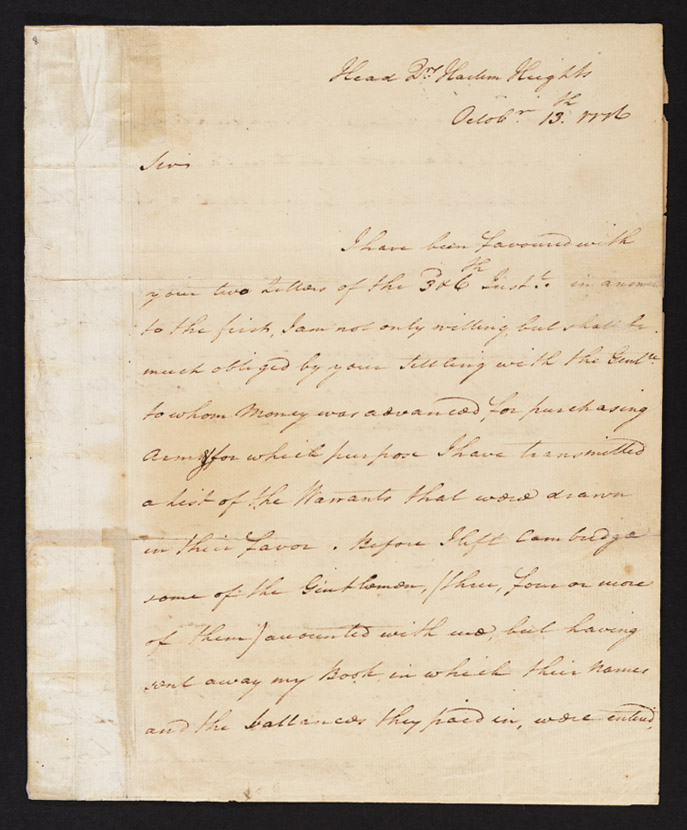 8
Head Qrs Harlem Heights
Octobr 13th 1776
Sir
I have been favoured with
your two Letters of the 3 & 6th Instt. in answer
to the first, I am not only willing, but shall be
much obliged by your settling with the Gentln
to whom Money was advanced for purchasing
Arms, for which purpose I have transmitted
a List of the Warrants that were drawn
in their favor. Before I left Cambridge
some of the Gentlemen, (three, four or more
of them) accounted with me, but having
sent away my Book, in which their names
and the ballances they paid in, were entered,